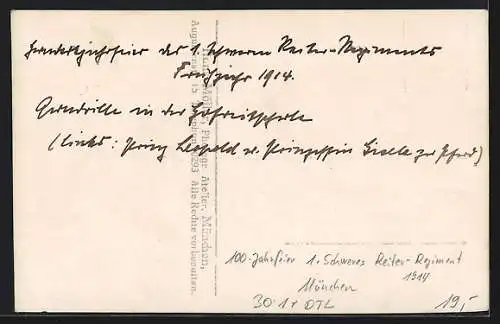 Hundertjahrfeier des 1. Schweren Reiter-Regiments
Frühjahr 1914.
Quadrille in der Hofreitschule
(links: Prinz Leopold u. Prinzessin Gisela zu Pferd)
Photogr. Atelier, München,
Alle Rechte vorbehalten.
100-Jahrfeier 1. Schweres Reiter-Regiment
1914
München
30.1r OTL
19,-